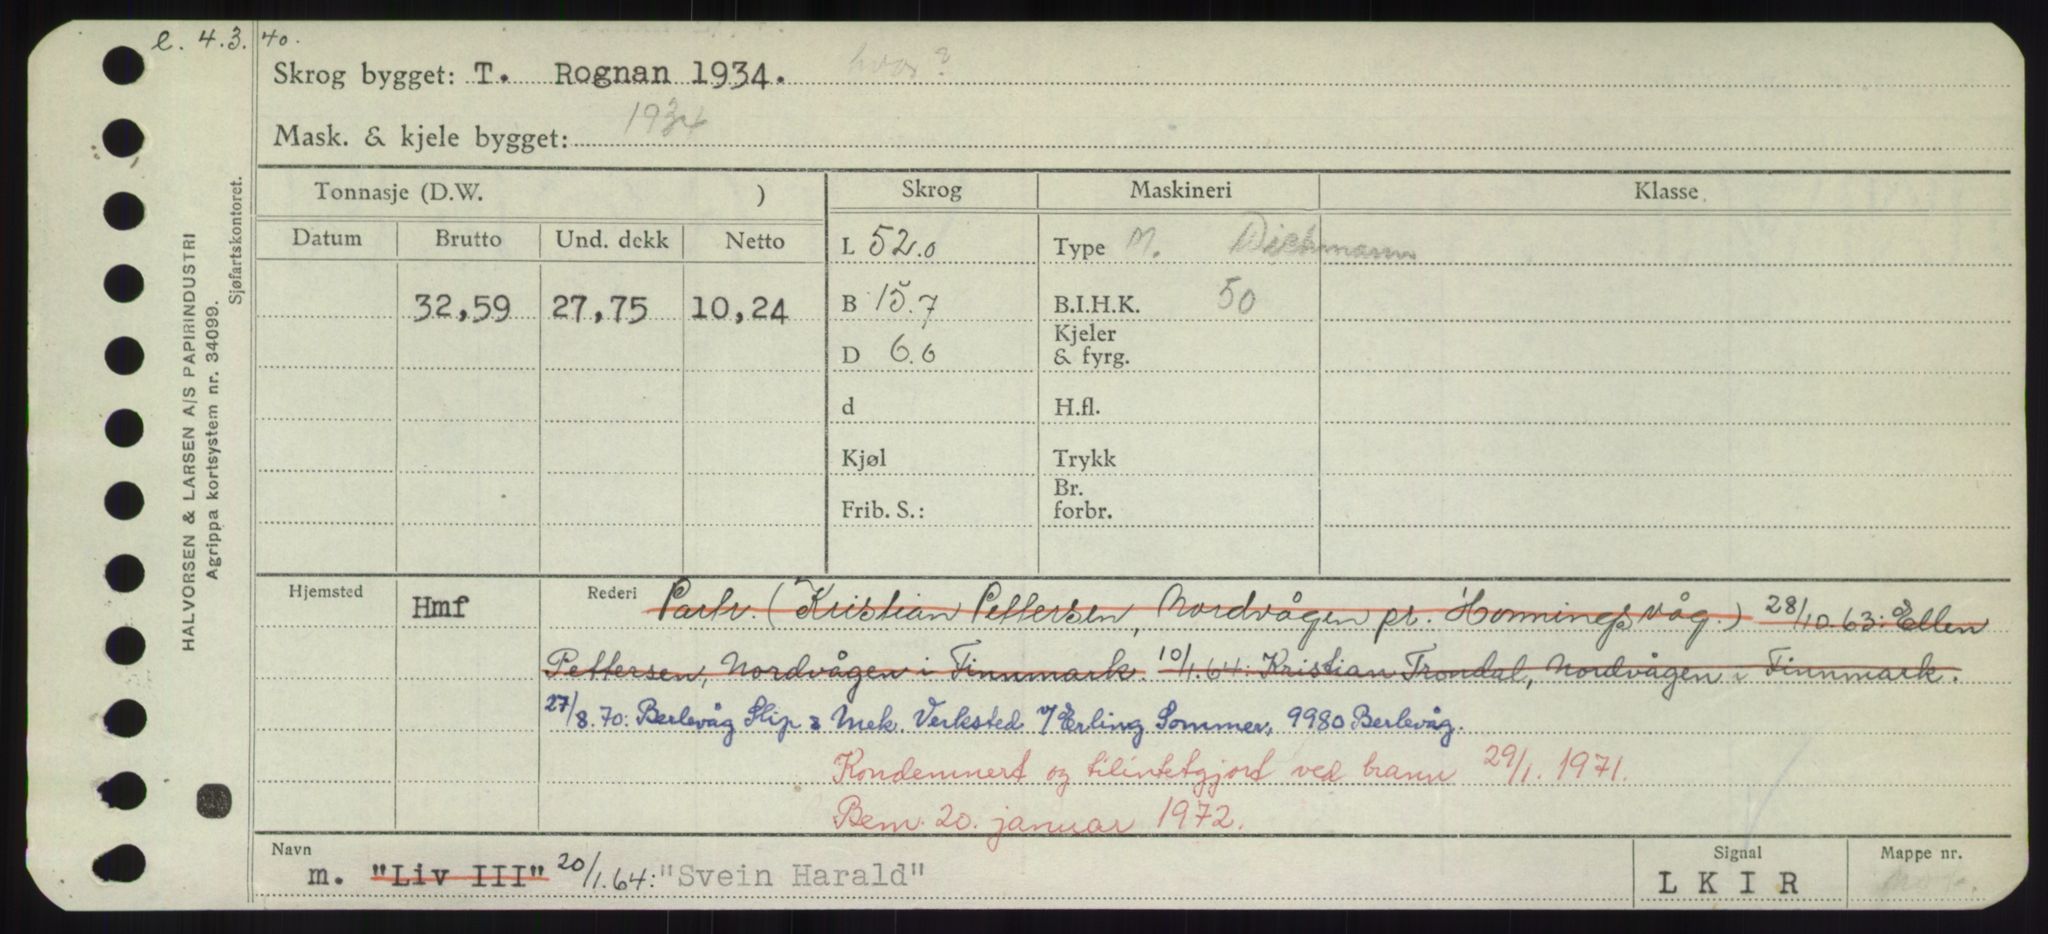 e. 4.3.40.
Skrog bygget: T. Rognan 1934. hvor?
Mask. & kjele bygget: 1934
Tonnasje (D.W. ) Skrog Maskineri Klasse
Datum Brutto Und. dekk Netto L 52.0 Type M. Wichmann
32,59 27,75 10,24 B 15.7 B.I.H.K. 50
D 6.6 Kjeler & fyrg.
d H.fl.
Kjøl Trykk
Frib. S.: Br. forbr.
Hjemsted Hmf Rederi Partr. (Kristian Pettersen, Nordvågen pr. Honningsvåg.) 28/10.63: Ellen
Pettersen, Nordvågen i Finnmark. 10/1.64: Kristian Trondal, Nordvågen i Finnmark.
27/8.70: Berlevåg Slip & Mek. Verksted v/ Erling Sommer, 9980 Berlevåg.
Kondemnert og tilintetgjort ved brann 29/1. 1971.
Bem. 20. januar 1972.
Navn Signal Mappe nr.
m. "Liv III" 20/1.64: "Svein Harald" LKIR
HALVORSEN & LARSEN A/S PAPIRINDUSTRI
Agrippa kortsystem nr. 34099.
Sjøfartskontoret.